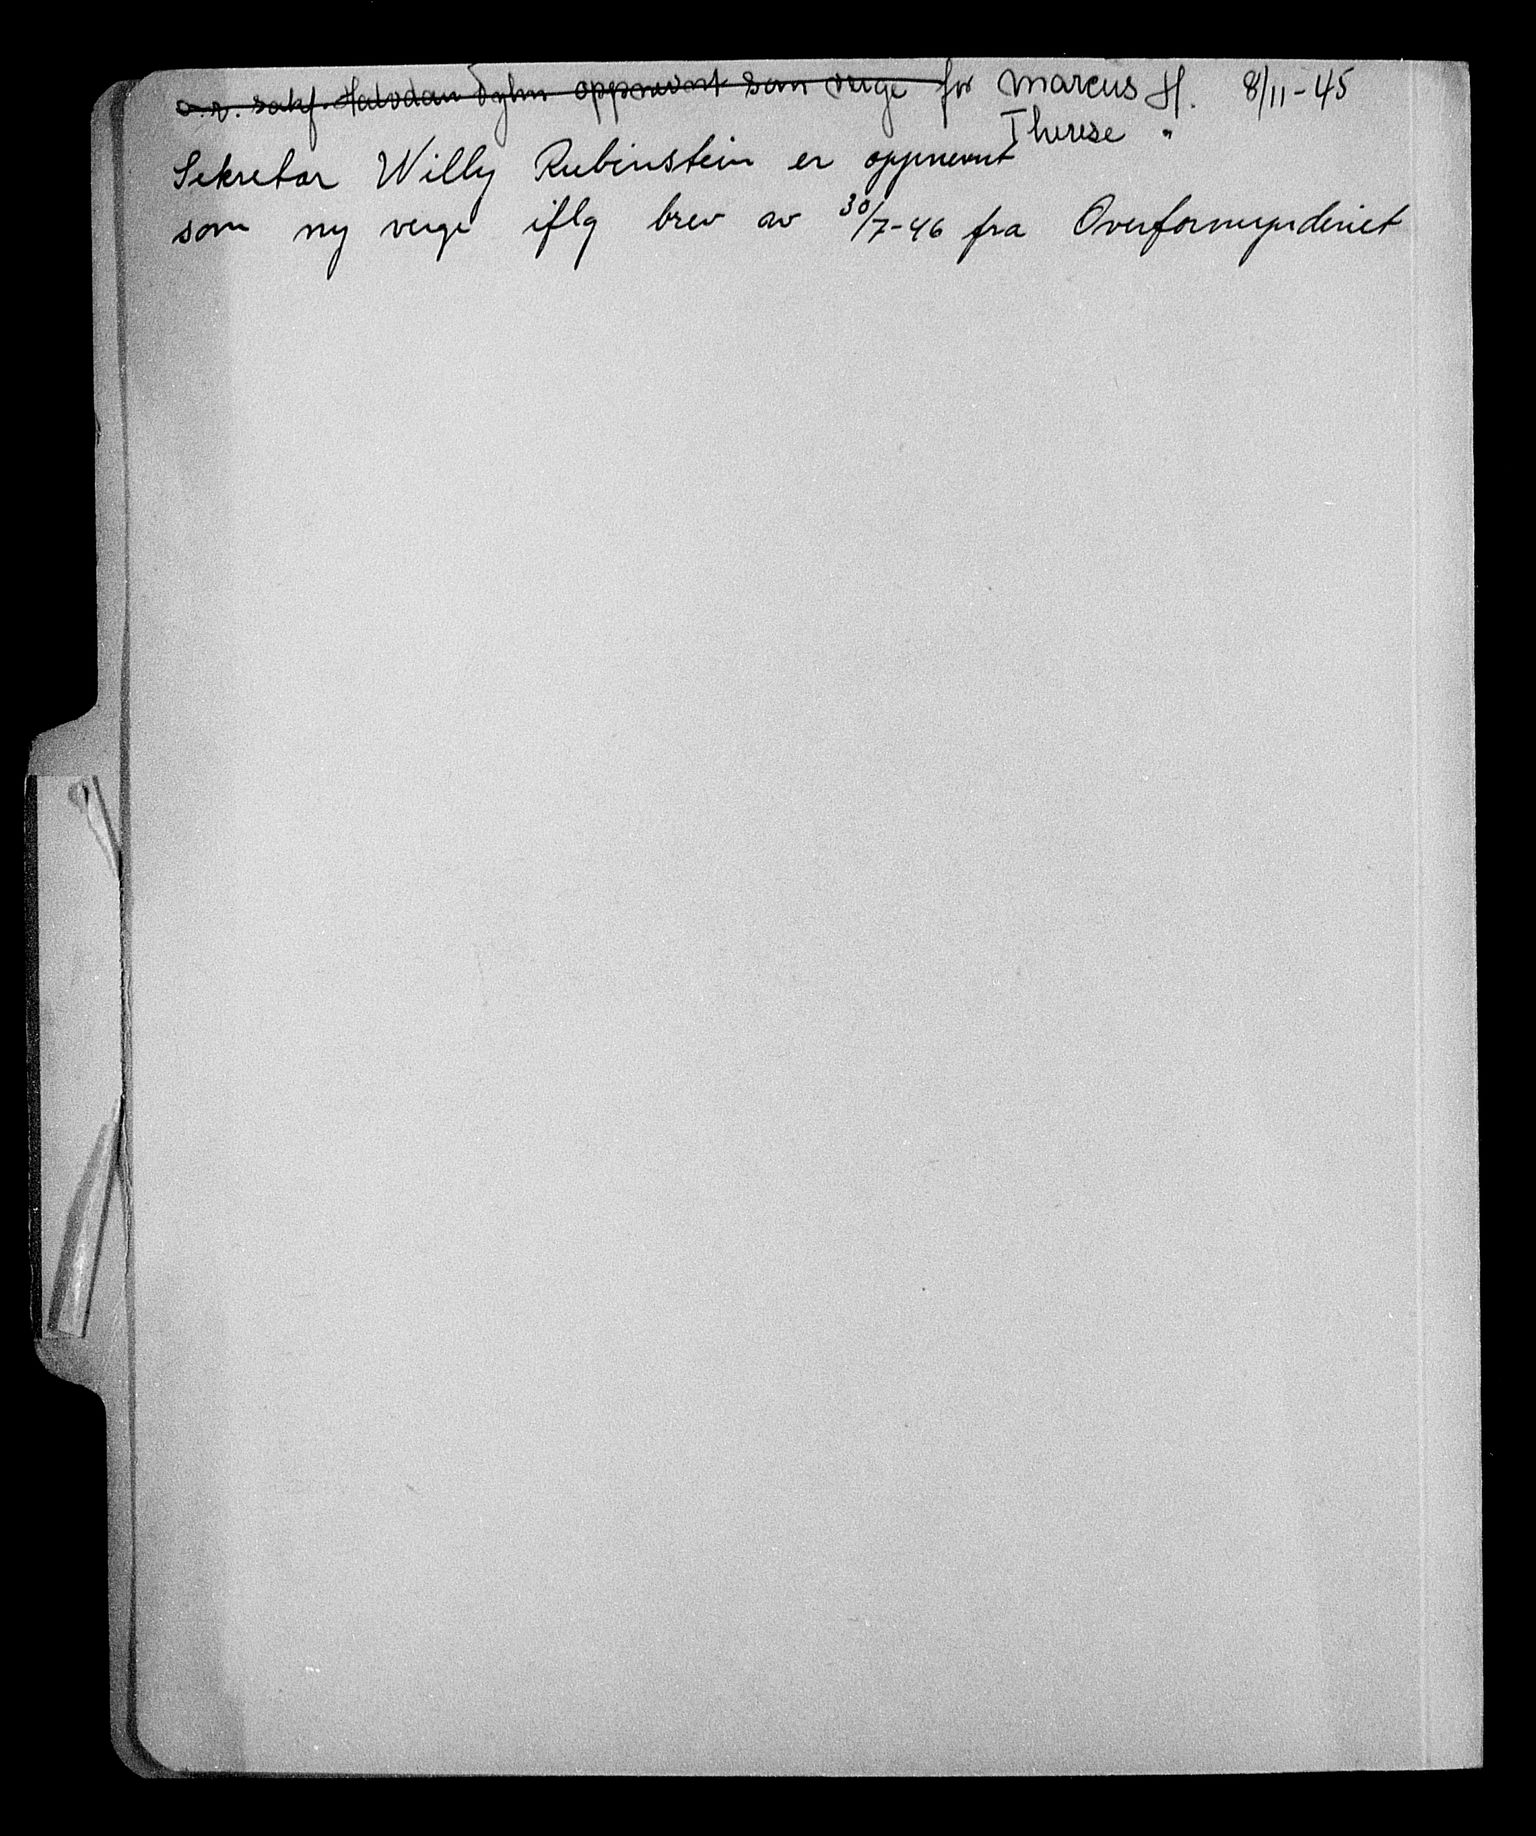 o.r. sakf. Halvdan oppnevnt som verge for Marcus H. 8/11-45
Therese "
Sekretær Willy Rubinstein er oppnevnt
som ny verge iflg brev av 30/7-46 fra Overformynderiet